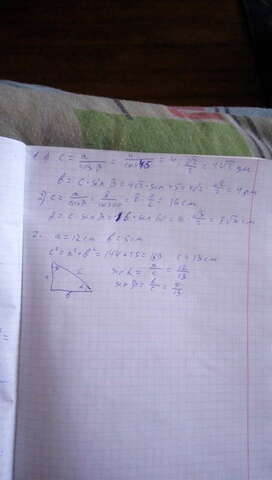 1. 1) c = a/cosβ = 4/cos45 = 4 : √2/2 = 4√2 дм
b = c · sin β = 4√2 · sin 45 = 4√2 · √2/2 = 4 дм
2) c = a/cosβ = 8/cos60 = 8 · 2/1 = 16 см
b = c · sin β = 16 · sin 60 = 16 · √3/2 = 8√3 см
2. a = 12 см b = 5 см
c² = a² + b² = 144 + 25 = 169 c = 13 см
sin α = a/c = 12/13
sin β = b/c = 5/13
c
b